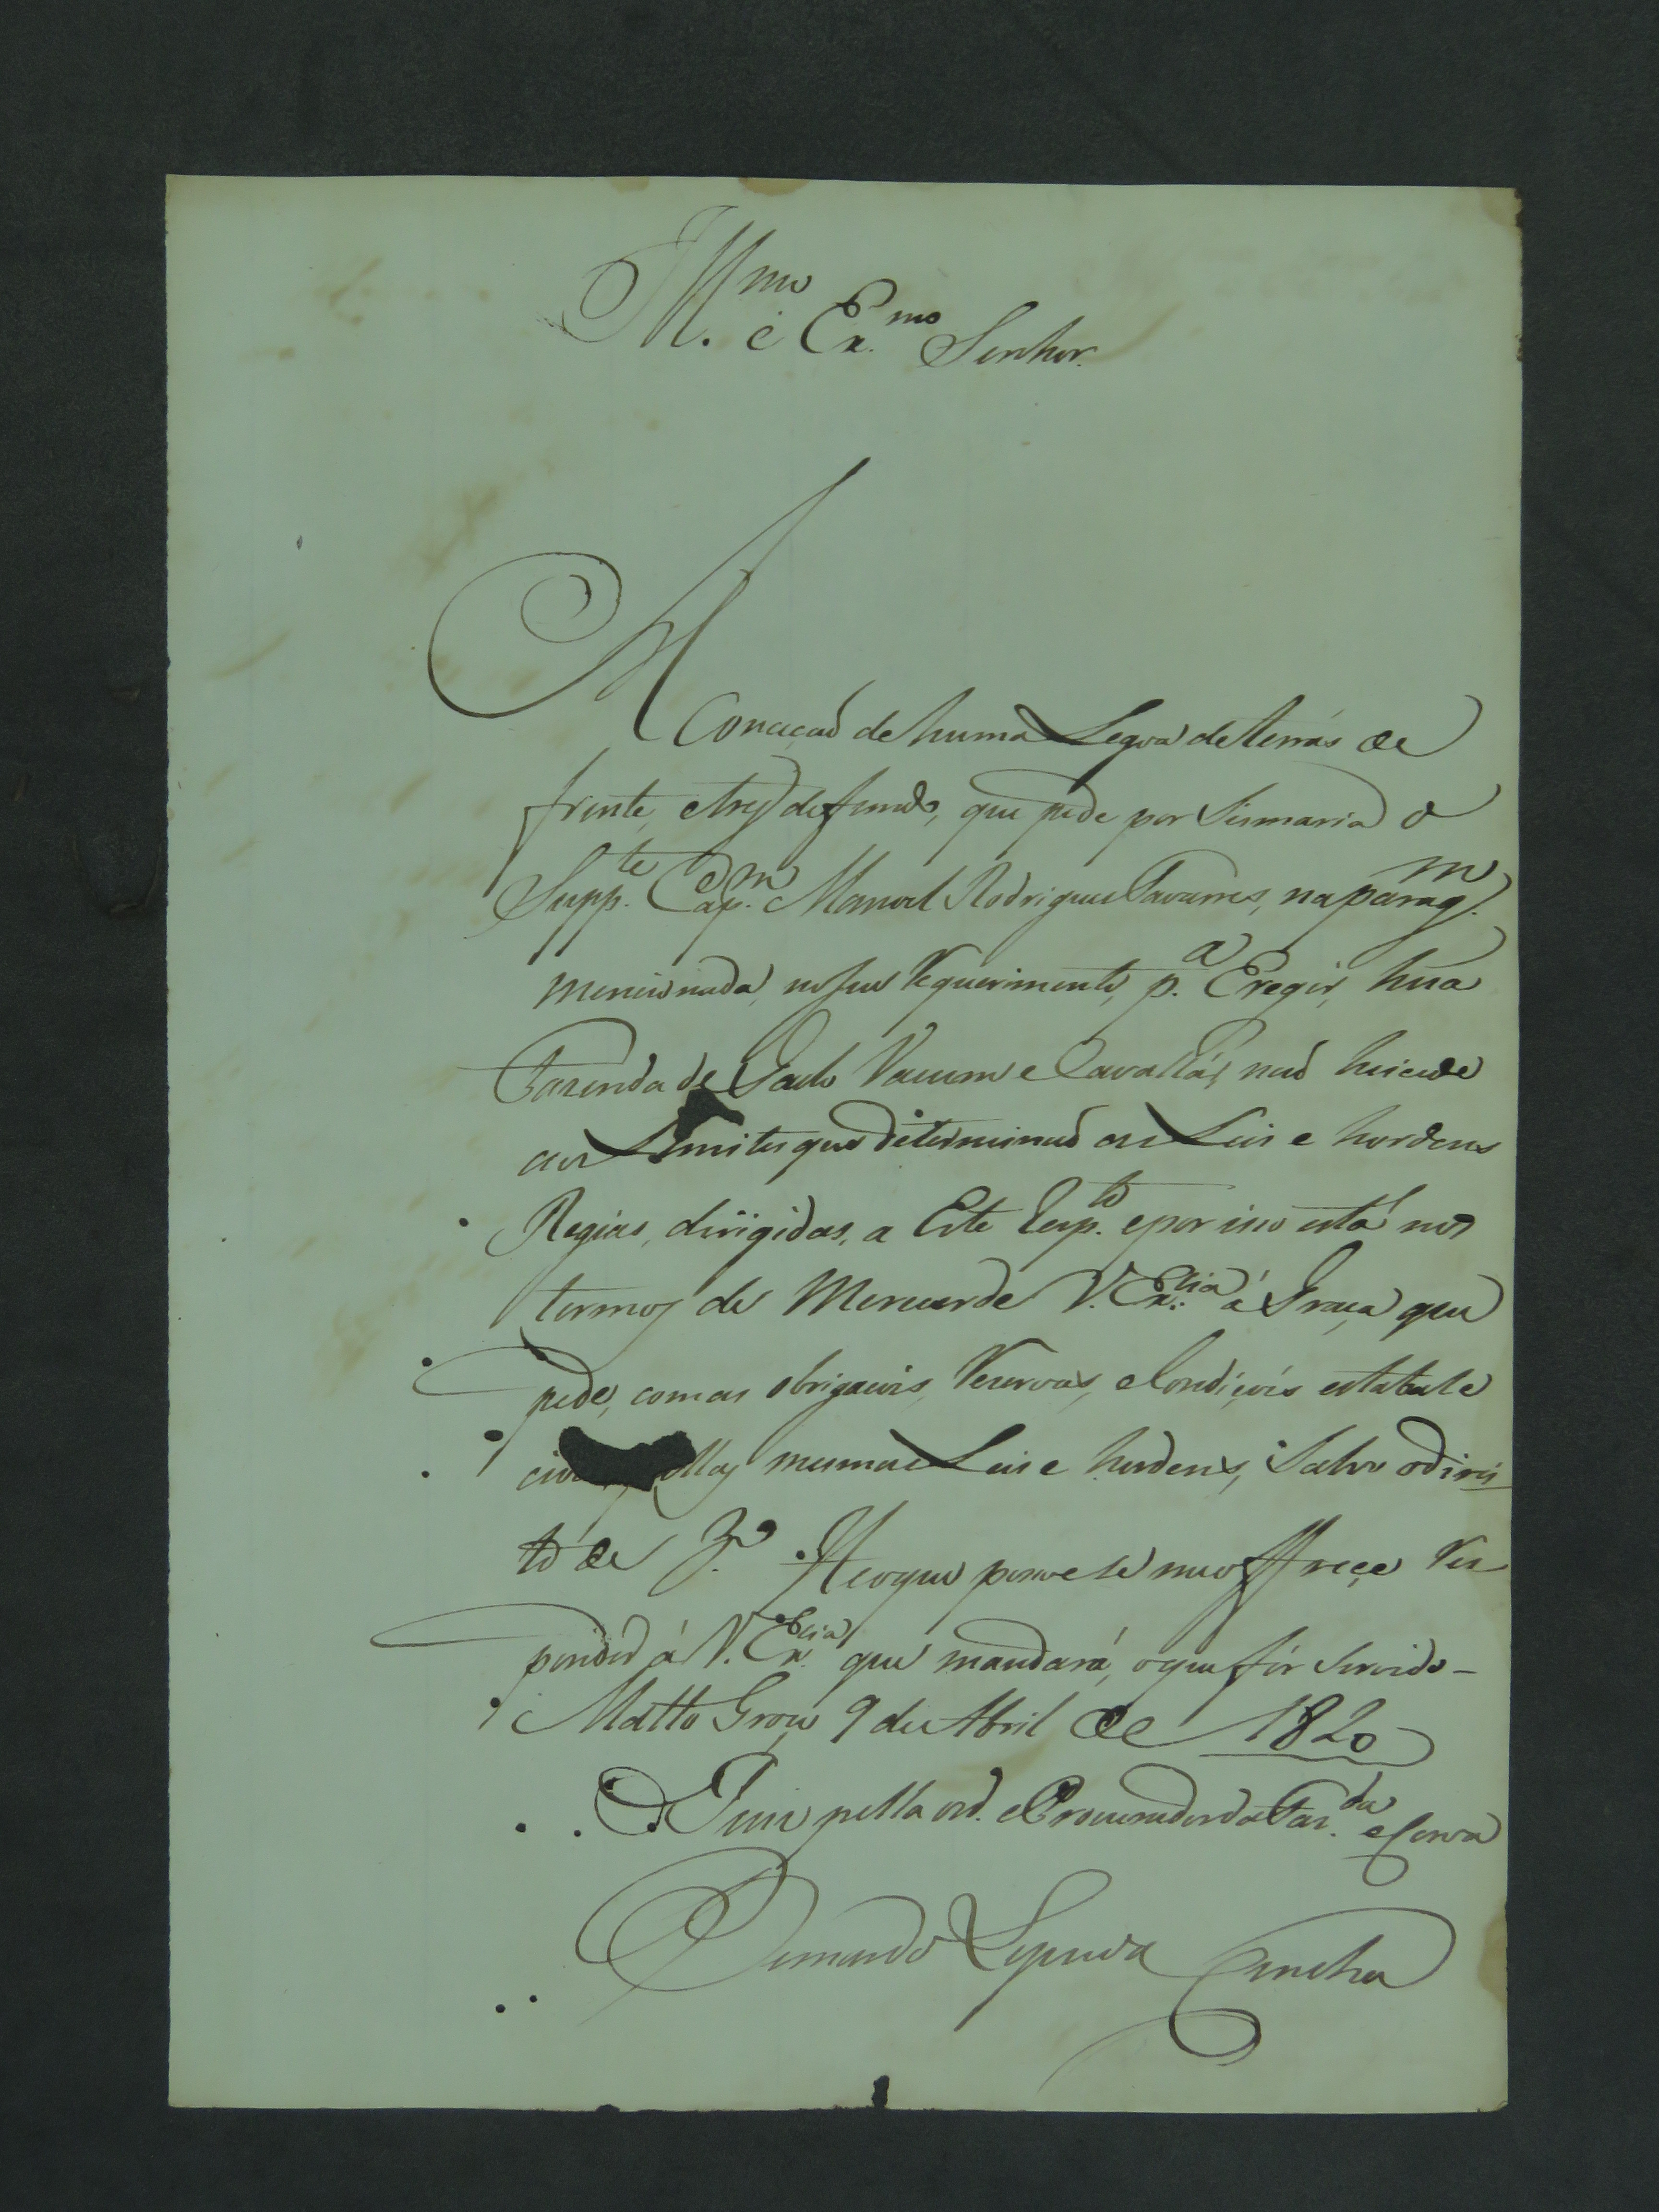 Ill.mo e Ex.mo Senhor.
A Conceçaõ de huma Legoa de terras de
frente, e tres de fundo, que pede por Sismaria o
Supp.te Cap.m Manoel Rodrigues Tavares, na parag.m
mencionada, no seu Requerimento, p.a Eregir, hũa
Fazenda de Gado Vacum e Cavallár, naõ hicede
aos Limites que determinaõ as Leis e hordens
Regias, dirigidas, a Este Resp.to e por isso está nos
termos de Merecer de V. Ex.cia á Graça que
pede, com as obrigacois, Reservas, e Condiçois estabale
cidas pellas mesmas Leis e hordens, Salvo o direi
to de 3.o He o que posso e se me offreçe Res
ponder á V. Ex.cia que mandará, o que fôr Servido-
Matto Groço 9 de Abril de 1820
O Juis pella ord. e Procurador da Faz.da e Coroa
Cunha